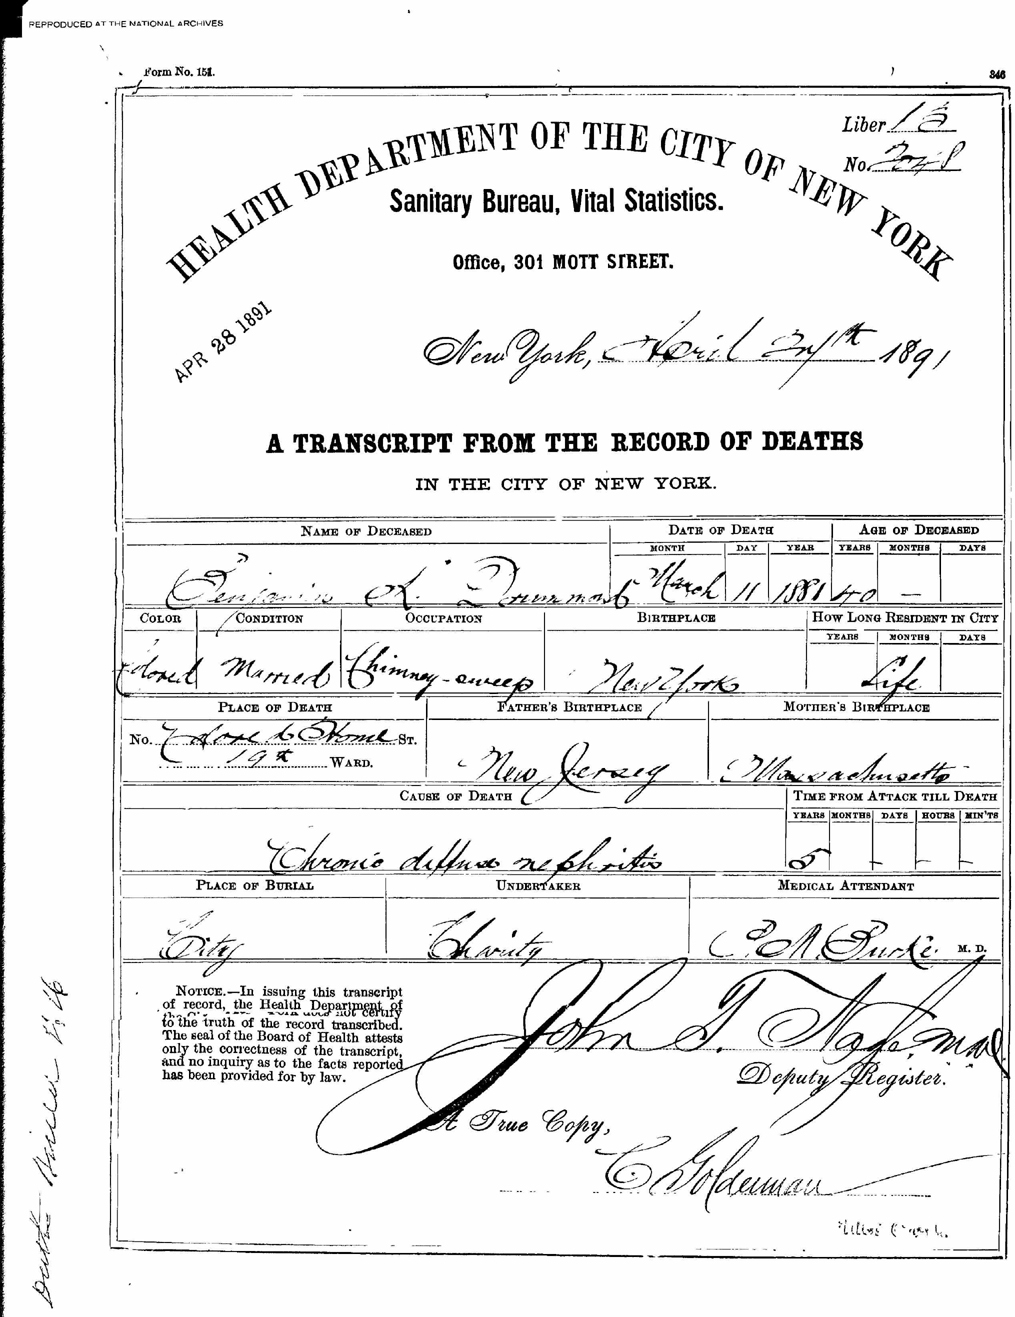 REPRODUCED AT THE NATIONAL ARCHIVES
Form No. 151.
346
Liber 13
No.
HEALTH DEPARTMENT OF THE CITY OF NEW YORK
Sanitary Bureau, Vital Statistics.
Office, 301 MOTT STREET.
APR 28 1891
New York, April 1891
A TRANSCRIPT FROM THE RECORD OF DEATHS
IN THE CITY OF NEW YORK.
NAME OF DECEASED DATE OF DEATH AGE OF DECEASED
MONTH DAY YEAR YEARS MONTHS DAYS
Benjamin K. Drummond March 11 1881 40 —
COLOR CONDITION OCCUPATION BIRTHPLACE HOW LONG RESIDENT IN CITY
YEARS MONTHS DAYS
Colored Married Chimney-sweep New York Life
PLACE OF DEATH FATHER'S BIRTHPLACE MOTHER'S BIRTHPLACE
No. Colored Home ST.
19th WARD. New Jersey Massachusetts
CAUSE OF DEATH TIME FROM ATTACK TILL DEATH
YEARS MONTHS DAYS HOURS MIN'TS
Chronic diffuse nephritis 5 – – –
PLACE OF BURIAL UNDERTAKER MEDICAL ATTENDANT
City Charity M. Burke M. D.
NOTICE.—In issuing this transcript
of record, the Health Department of
not certify
to the truth of the record transcribed.
The seal of the Board of Health attests
only the correctness of the transcript,
and no inquiry as to the facts reported
has been provided for by law.
John T. Nagle, M.D.
Deputy Register.
A True Copy,
C Golderman